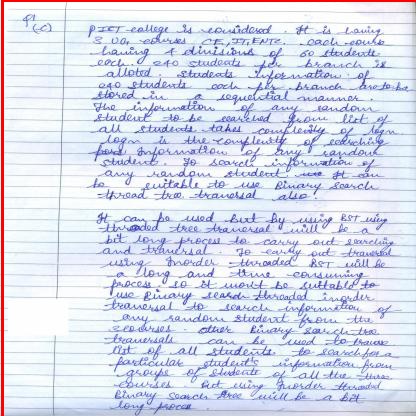 Q1
(c)
PICT college is considered. It is having
3 UG courses CE, IT, ENTC. Each course
having 4 divisions of 60 students
each. 240 students per branch is
alloted. Students information of
240 students each per branch are to be
stored in a sequential manner.
The information of any random
student to be searched from list of
all students takes complexity of logn
logn is the complexity of searching
Information of any random
student. To search information of
any random student It can
be suitable to use Binary search
thread tree traversal also.
It can be used but by using BST using
threaded tree traversal will be a
bit long process to carry out searching
and traversal. To carry out traversal
using Inorder threaded BST will be
a long and time consuming
process so it wont be suitable to
use Binary search threaded inorder
traversal to search information of
any random student from the
courses other Binary search tree
traversals can be used to
list of all students. to search for a
particular student's information from
groups of students of all the three
courses. But using Inorder threaded
Binary search tree will be a bit
long process.